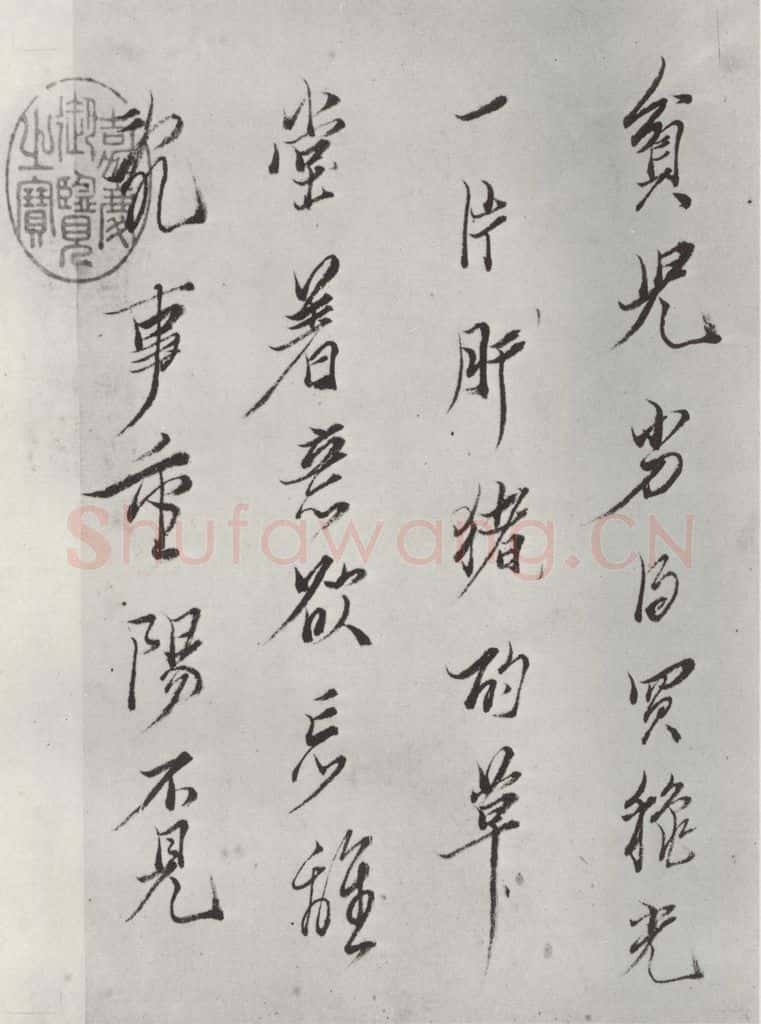 貧兒劣得買穐光
一片肝猪酌草
堂着意欲忘離
亂事重陽不見
嘉慶御覽之寶
Shufawang.CN